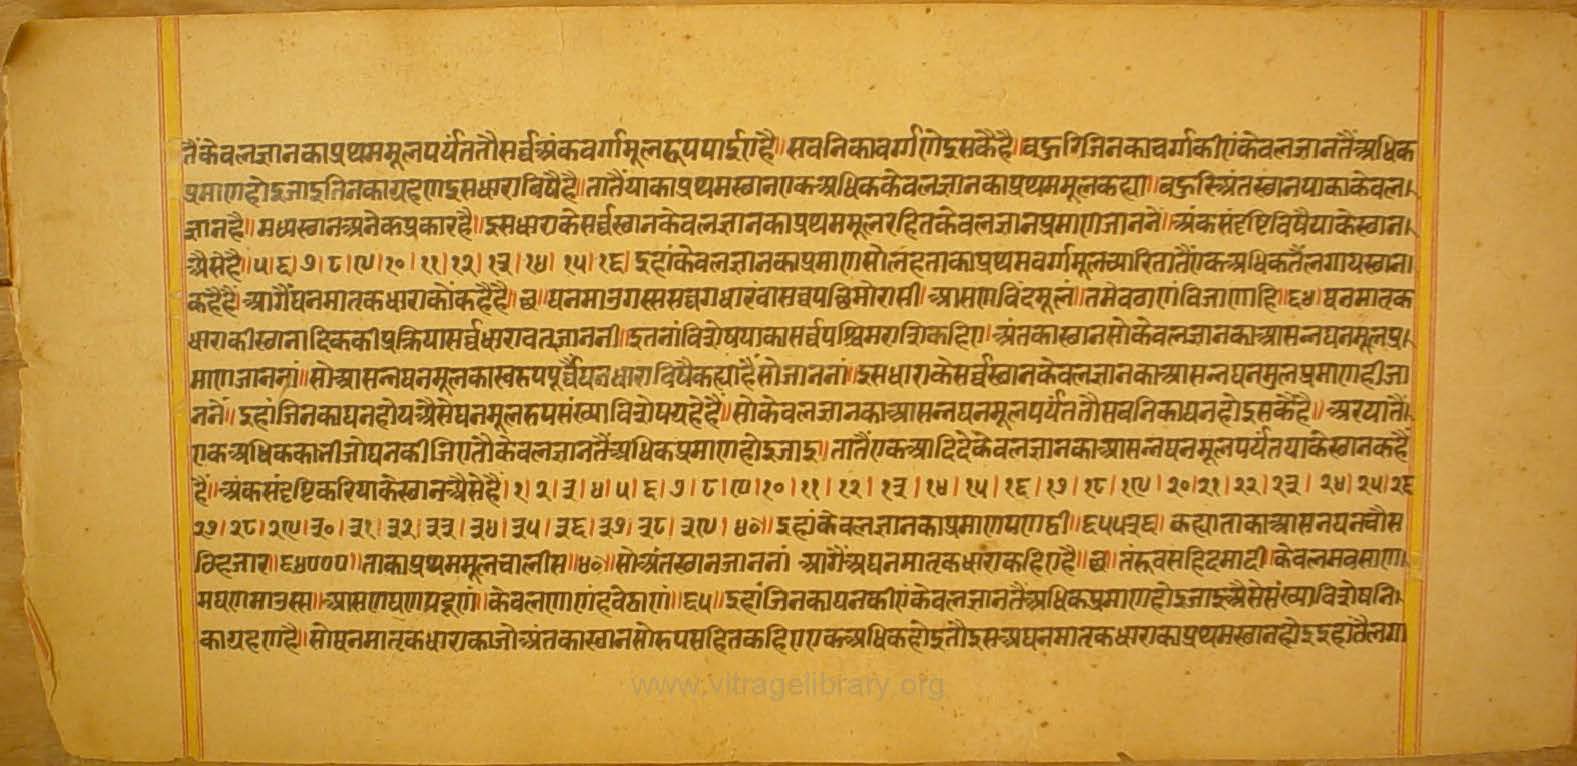 तैंकेवलज्ञानकाप्रथममूलपर्यंततौसर्व्वअंकवर्गमूलरूपपाईएहै॥सवनिकावर्ग्गणेइसकैहै॥वहुरिजिनकावर्गकीएंकेवलज्ञानतैंअधिक
प्रमाणहोइजाइतिनकाग्रहणइसधाराबिषैहै॥तातैंयाकाप्रथमस्थानएकअधिककेवलज्ञानकाप्रथममूलकह्या॥वहुरिअंतस्थानयाकाकेवल।
ज्ञानहै॥मध्यस्थानअनेकप्रकारहै॥इसधाराकेसर्व्वस्थानकेवलज्ञानकाप्रथममूलरहितकेवलज्ञानप्रमाणजाननें॥अंकसंदृष्टिविषैयाकेस्थान।
अैसेहै॥५।६।७।८।९।१०।११।१२।१३।१४।१५।१६।इहांकेवलज्ञानकाप्रमाणसोलहताकाप्रथमवर्गमूलच्यारितातैंएकअधिकतैंलगायस्थान।
कहैहैं॥आगैंघनमातृकधाराकोंकहैहै॥छ॥घनमाउगस्ससव्वगधारंवासव्वपच्छिमोरासी॥आसणविंदमूलं॥तमेवठाणंविजाणाहि॥६४॥घनमातृक
धाराकीस्थानादिककीप्रक्रियासर्व्वधारावतजाननी॥इतनांविशेषयाकासर्व्वपश्चिमराशिकहिए।अंतकास्थानसोकेवलज्ञानकाआसन्नघनमूलप्र।
माणजाननां॥सोआसन्नघनमूलकास्वरूपपूर्व्वैघनधाराविषैकह्याहैसोजाननां॥इसधाराकेसर्व्वस्थानकेवलज्ञानकाआसन्नघनमूलप्रमाणहीजा
ननें॥इहांजिनकाघनहोयअैसेघनमूलरूपसंख्याविशेषग्रहेहै॥सोकेवलज्ञानकाआसन्नघनमूलपर्यंततौसवनिकाघनहोइसकैहै॥अरयातैं।
एकअधिककाभीजोघनकीजिएतौकेवलज्ञानतैंअधिकप्रमाणहोइजाइ॥तातैंएकआदिदेकेवलज्ञानकाआसन्नघनमूलपर्यंतयाकेस्थानकहै
हैं॥अंकसंदृष्टिकरियाकेस्थानअैसेहै।१।२।३।४।५।६।७।८।९।१०।११।१२।१३।१४।१५।१६।१७।१८।१९।२०।२१।२२।२३।२४।२५।२६
२७।२८।२९।३०।३१।३२।३३।३४।३५।३६।३७।३८।३९।४०॥इहांकेवलज्ञानकाप्रमाणपणट्ठी॥६५५३६॥कह्याताकाआसनघनचौस
ठिहजार॥६४०००॥ताकाप्रथममूलचालीस॥४०॥सोअंतस्थानजाननां आगैंअघनमातृकधाराकहिएहै॥छ॥तंरूवसहिदमादी॥केवलमवसाण।
मघणमाउस्स॥आसणघणपदूणं॥केवलणाणंहवेठाणं॥६५॥इहांजिनकाघनकीएंकेवलज्ञानतैंअधिकप्रमाणहोइजाइअैसेसंख्याविशेषनि।
काग्रहणहै॥सोघनमातृकधाराकाजोअंतकास्थानसोरूपसहितकहिएएकअधिकहोइतौइसअघनमातृकधाराकाप्रथमस्थानहोइइहांतैंलगा।
www.vitragelibrary.org